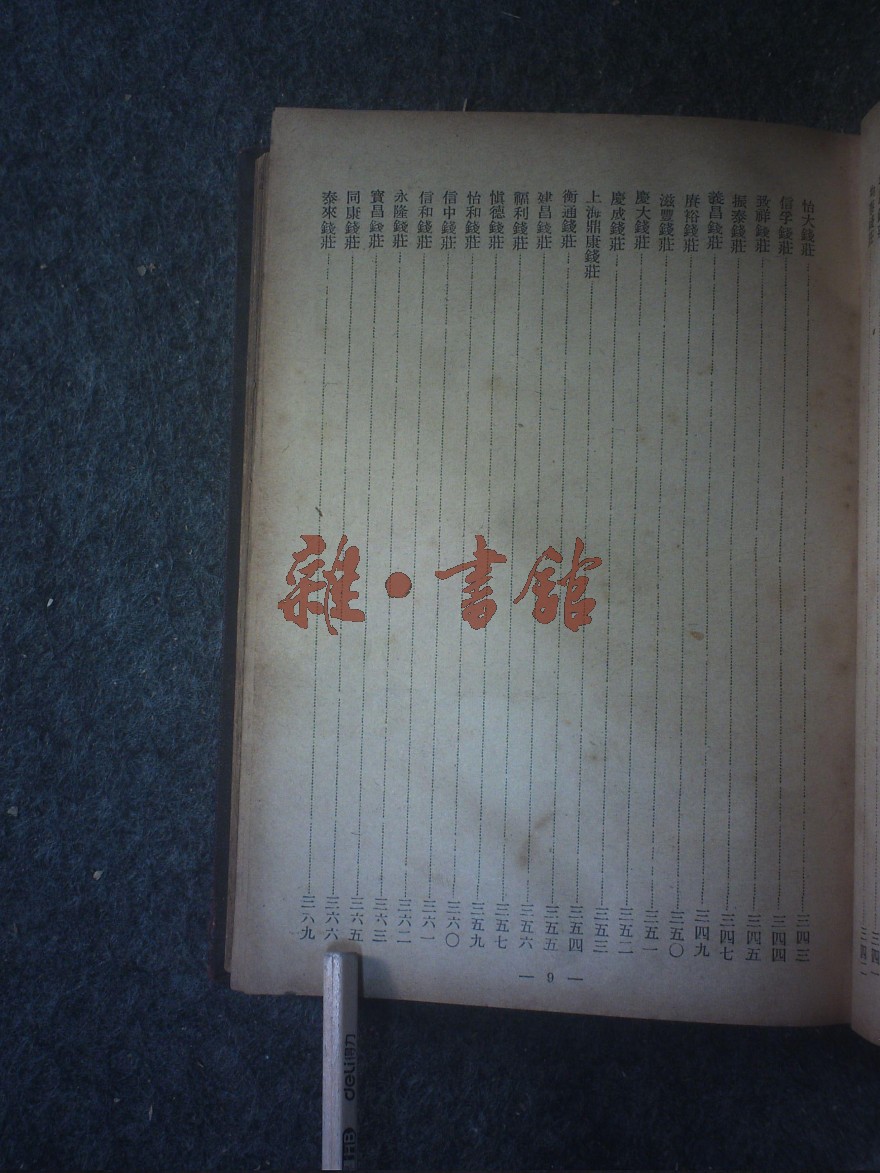 怡大錢莊……三四三
信孚錢莊……三四四
致祥錢莊……三四五
振泰錢莊……三四七
義昌錢莊……三四九
賡裕錢莊……三五〇
滋豐錢莊……三五一
慶大錢莊……三五二
慶成錢莊……三五三
上海鼎康錢莊……三五四
衡通錢莊……三五五
建昌錢莊……三五六
福利錢莊……三五七
愼德錢莊……三五九
怡和錢莊……三六〇
信中錢莊……三六一
信和錢莊……三六二
永隆錢莊……三六三
寶昌錢莊……三六五
同康錢莊……三六六
泰來錢莊……三六九
— 9 —
雜·書館
deli得力
HB